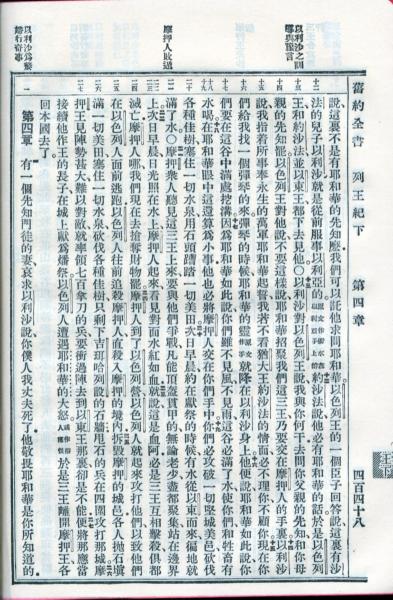 舊約全書 列王紀下 第四章 四百四十八
摩押人敗遁
以利沙爲嫠
婦行奇事
說這裏不是有耶和華的先知麼我們可以託他求問耶和華以色列王的一個臣子回答說這裏有沙
法的兒子以利沙就是從前服事以利亞的約沙法說他必有耶和華的話於是以色列
王和約沙法並以東王都下去見他〇以利沙對以色列王說我與你何干去問你父親的先知和你母
親的先知罷以色列王對他說不要這樣說耶和華招聚我們這三王乃要交在摩押人的手裏以利沙
說我指着所事奉永生的萬軍耶和華起誓我若不看猶大王約沙法的情面必不理你不顧你現在你
們給我找一個彈琴的來彈琴的時候耶和華的靈原文作手就降在以利沙身上他便說耶和華如此說你
們要在這谷中滿處挖溝因爲耶和華如此說你們雖不見風不見雨這谷必滿了水使你們和牲畜有
水喝在耶和華眼中這還算爲小事他也必將摩押人交在你們手中你們必攻破一切堅城美邑砍伐
各種佳樹塞住一切水泉用石頭蹧踏一切美田次日早晨約在獻祭的時候有水從以東而來徧地就
滿了水〇摩押衆人聽見這三王上來要與他們爭戰凡能頂盔貫甲的無論老少盡都聚集站在邊界
上次日早晨日光照在水上摩押人起來看見對面水紅如血就說這是血阿必是三王互相擊殺俱都
滅亡摩押人哪我們現在去搶奪財物罷摩押人到了以色列營以色列人就起來攻打他們以致他們
在以色列人面前逃跑以色列人往前追殺摩押人直殺入摩押的境內拆毀摩押的城邑各人抛石填
滿一切美田塞住一切水泉砍伐各種佳樹只剩下吉珥哈列設的石牆甩石的兵在四圍攻打那城摩
押王見陣勢甚大難以對敵就率領七百拿刀的兵要衝過陣去到以東王那裏卻是不能便將那應當
接續他作王的長子在城上獻爲燔祭以色列人遭遇耶和華的大怒或作招人痛恨於是三王離開摩押王各
回本國去了
第四章 有一個先知門徒的妻哀求以利沙說你僕人我丈夫死了他敬畏耶和華是你所知道的